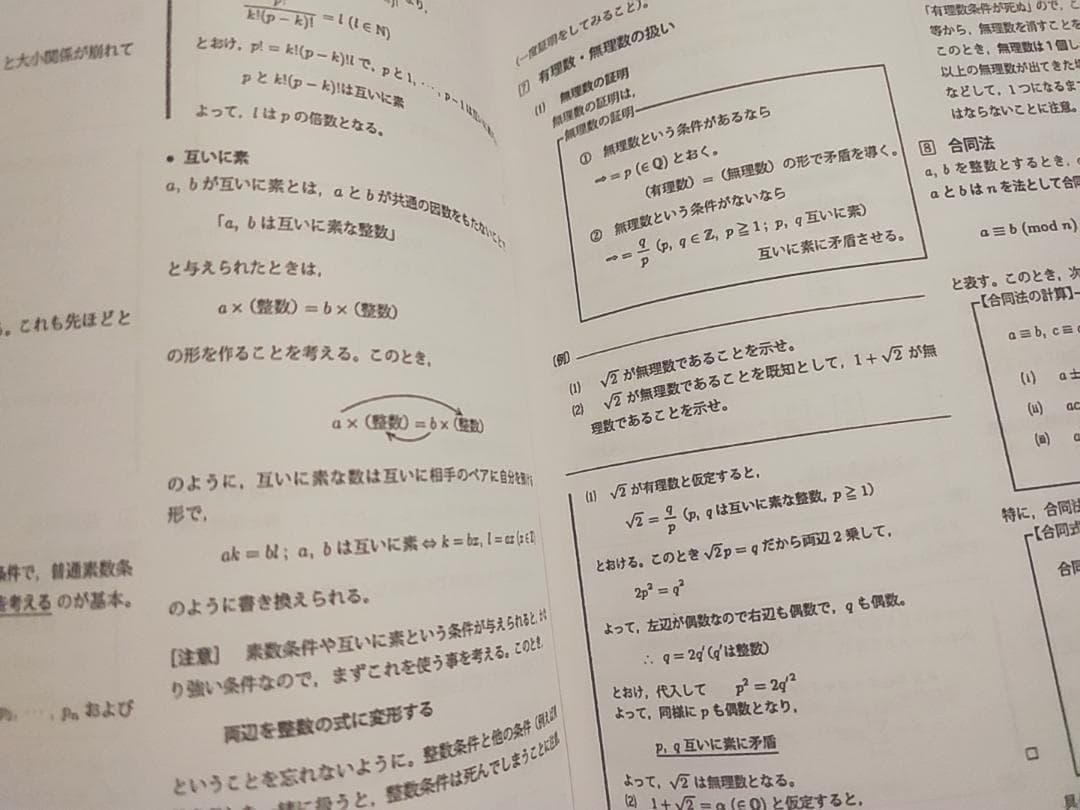 と大小関係が崩れて
。これも先ほどと
条件で，普通素数条
を考える のが基本。
⋯, pₙ および
p!/k!(p−k)! = l (l∈ℕ)
とおけ，p! = k!(p−k)!l で，p と 1, ⋯, p−1は互いに素
p と k!(p−k)!は互いに素
よって，l は p の倍数となる。
● 互いに素
a, b が互いに素とは，a と b が共通の因数をもたないことで
「a, b は互いに素な整数」
と与えられたときは，
a×（整数）＝b×（整数）
の形を作ることを考える。このとき，
a×（整数）＝b×（整数）
のように，互いに素な数は互いに相手のペアに自分を
形で，
ak = bl ; a, b は互いに素 ⇔ k = bz, l = az (z∈ℤ)
のように書き換えられる。
［注意］ 素数条件や互いに素という条件が与えられると，
り強い条件なので，まずこれを使う事を考える。このとき，
両辺を整数の式に変形する
ということを忘れないように。整数条件と他の条件（例えば
一緒に扱うと，整数条件は死んでしまうことに注意
（一度証明をしてみること）。
7 有理数・無理数の扱い
(1) 無理数の証明
無理数の証明は，
無理数の証明
① 無理数という条件があるなら
⇒ = p (∈ℚ) とおく。
（有理数）＝（無理数）の形で矛盾を導く。
② 無理数という条件がないなら
⇒ = q/p (p, q∈ℤ, p≧1 ; p, q 互いに素）
互いに素に矛盾させる。
（例）
(1) √2 が無理数であることを示せ。
(2) √2 が無理数であることを既知として，1+√2 が無
理数であることを示せ。
(1) √2 が有理数と仮定すると，
√2 = q/p (p, q は互いに素な整数, p≧1)
とおける。このとき √2p = q だから両辺 2 乗して，
2p² = q²
よって，左辺が偶数なので右辺も偶数で，q も偶数。
∴ q = 2q′(q′は整数)
とおけ，代入して p² = 2q′²
よって，同様に p も偶数となり，
p, q 互いに素に矛盾
よって，√2 は無理数となる。
□
(2) 1+√2 = a (∈ℚ) と仮定すると，
「有理数条件が死ぬ」ので，こ
等から，無理数を消すことを
このとき，無理数は1個し
以上の無理数が出てきた場
などして，1つになるま
はならないことに注意。
8 合同法
a, b を整数とするとき，
a と b は n を法として合同
a ≡ b (mod n)
と表す。このとき，次
【合同法の計算】
a ≡ b, c ≡
(i) a±
(ii) ac
(iii) a
特に，合同法
【合同式
合同